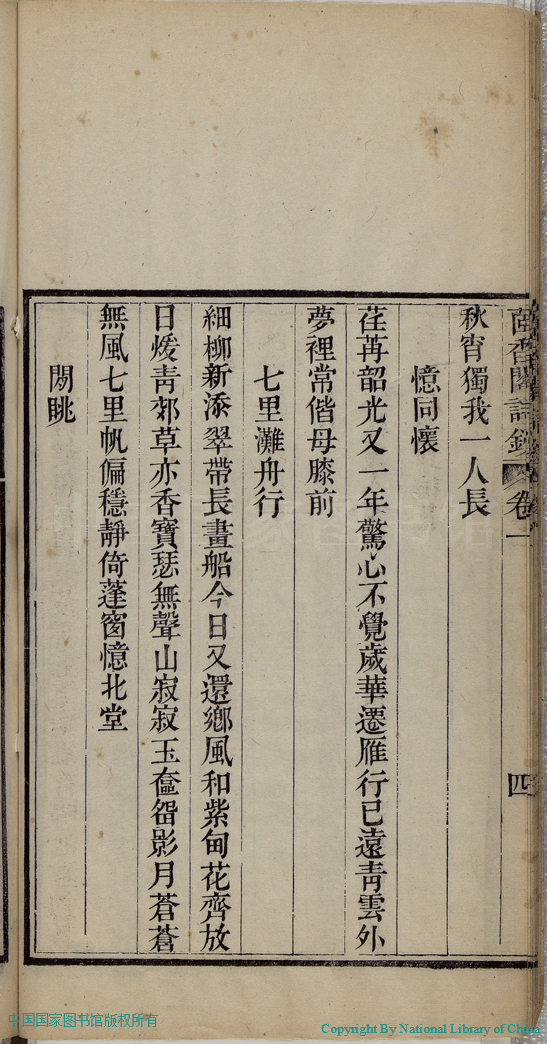 茝香閣詩鈔 卷一 四
秋宵獨我一人長
憶同懷
荏苒韶光又一年驚心不覺歲華遷雁行已遠青雲外
夢裡常偕母膝前
七里灘舟行
細柳新添翠帶長畫船今日又還鄉風和紫甸花齊放
日煖青郊草亦香寶瑟無聲山寂寂玉奩畱影月蒼蒼
無風七里帆偏穩靜倚蓬窗憶北堂
閒眺
中国国家图书馆版权所有
Copyright By National Library of China